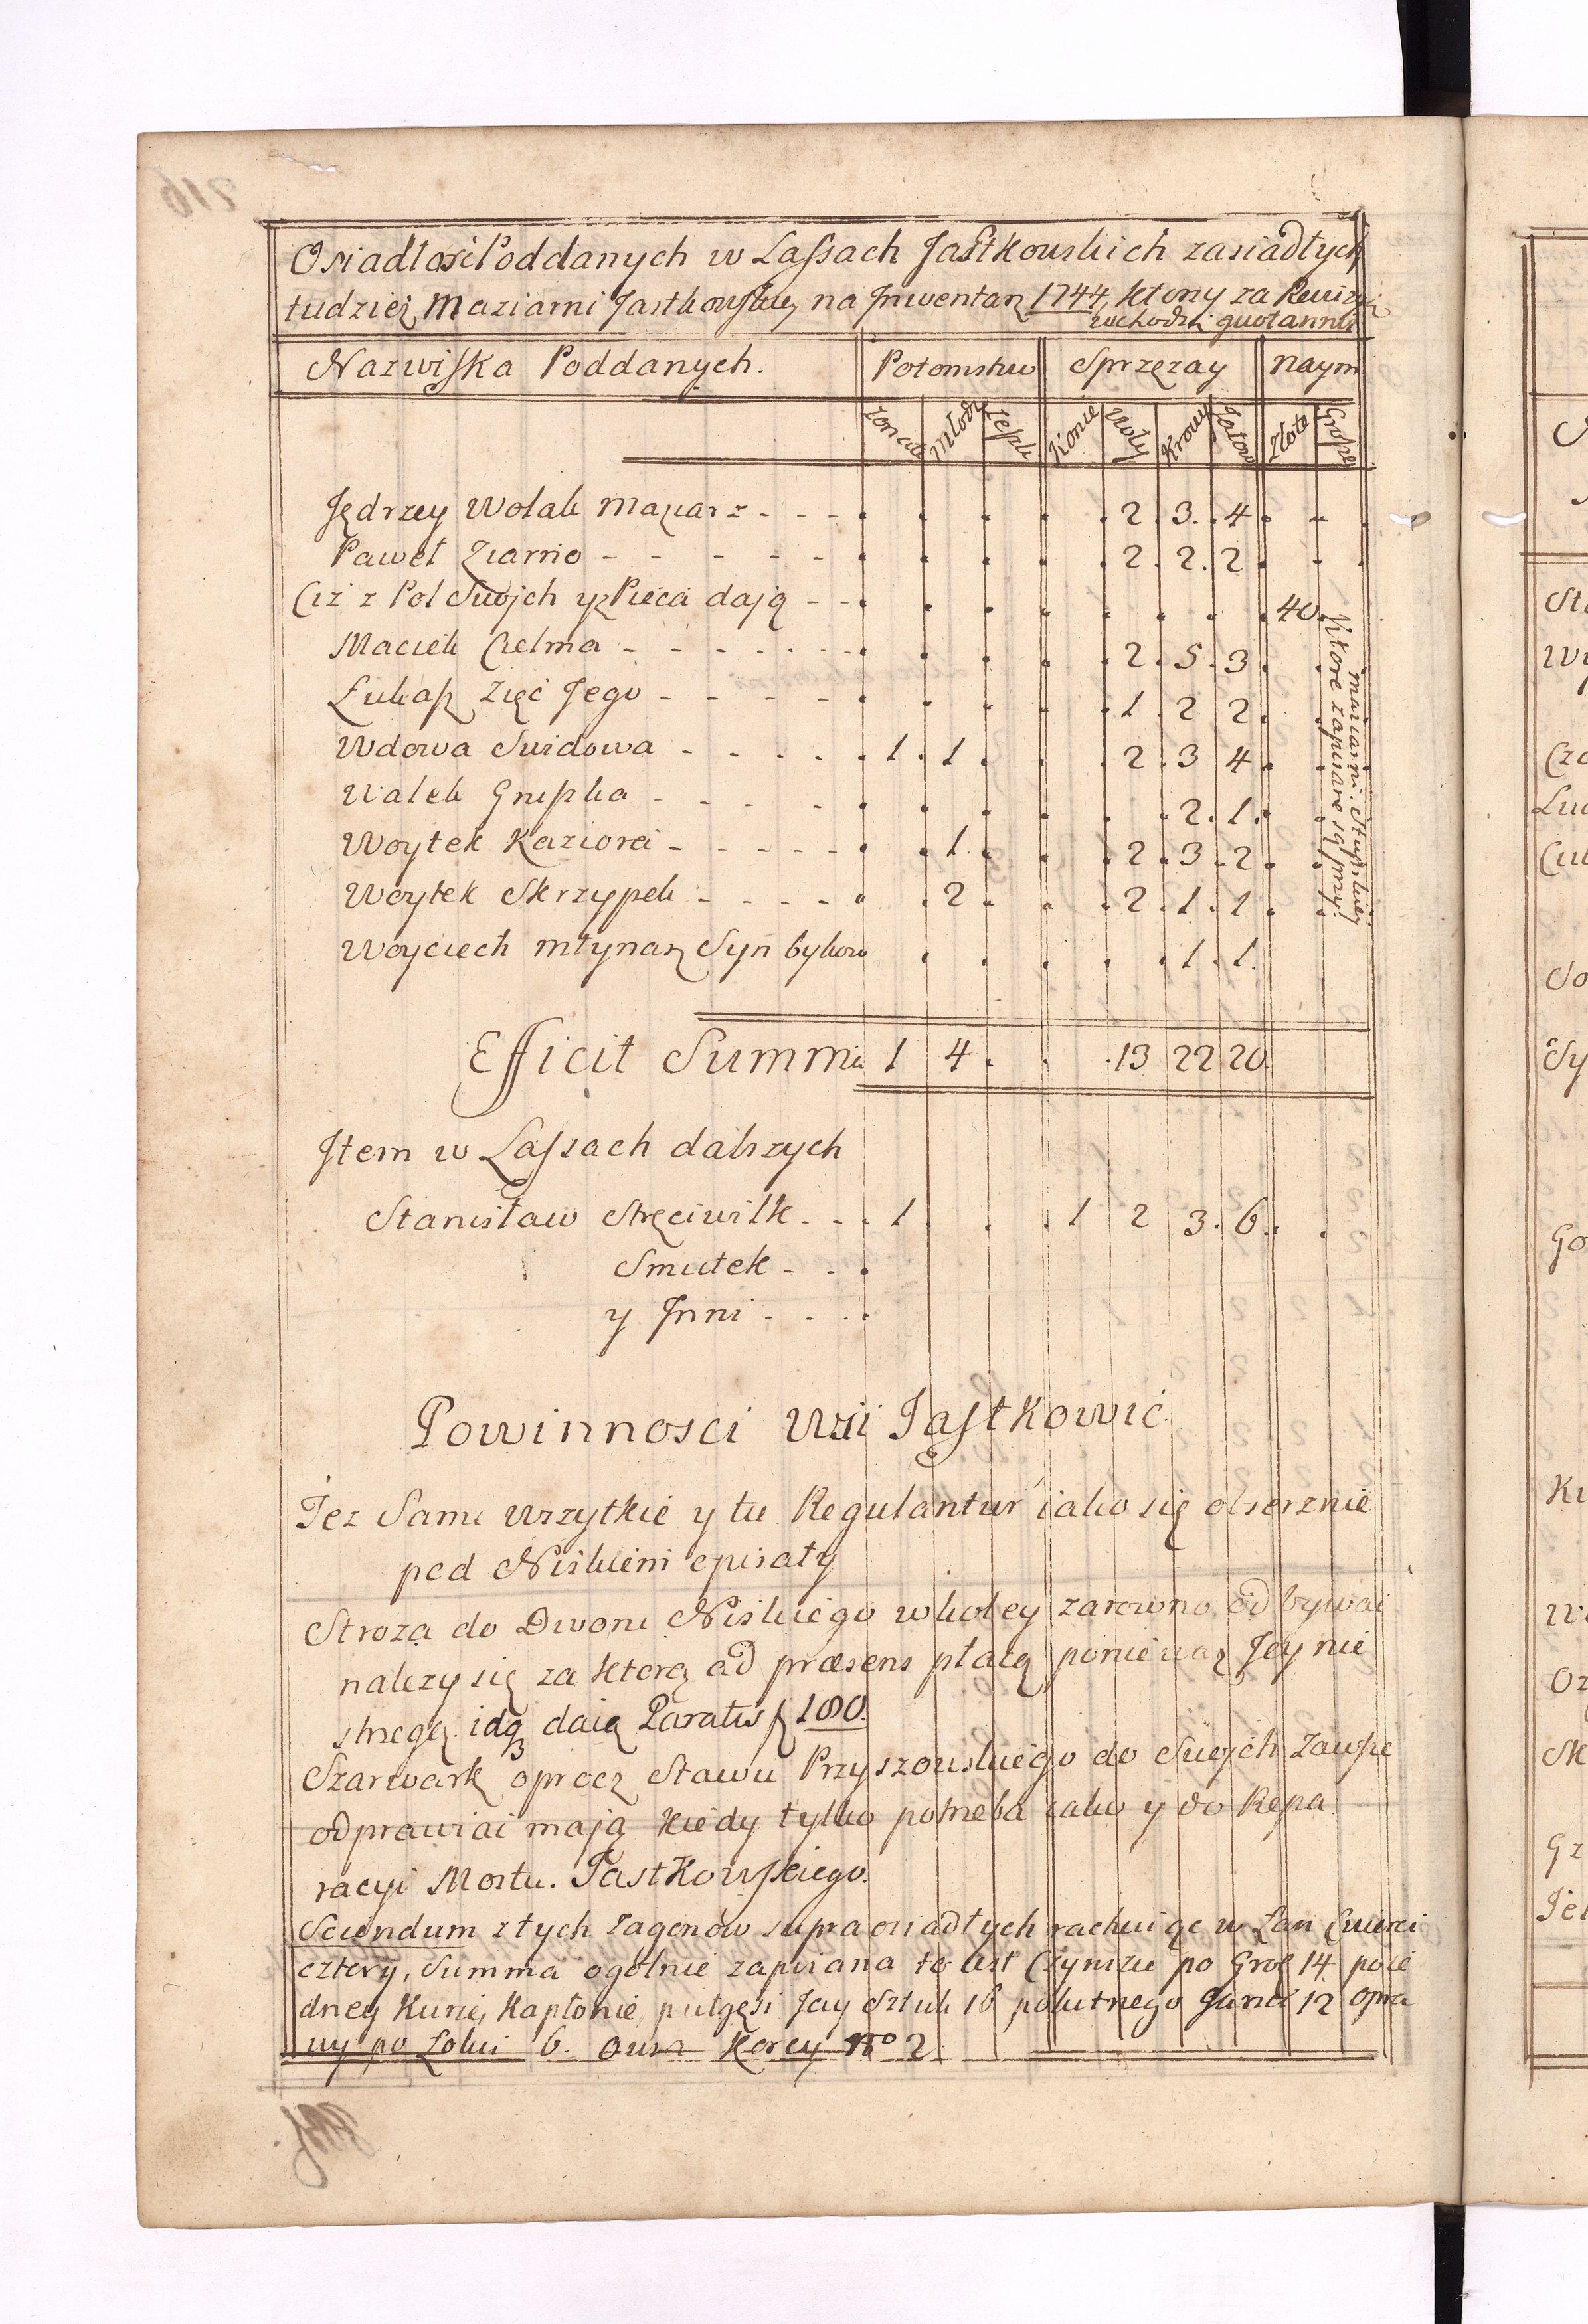 Osiadłosci Poddanych w Lassach Jastkowskich zasiadłych
tudziez Maziarni Jastkowskiey na Inwentarz 1744, ktory za Rewizyi
wchodzi quotannis
Nazwiska Poddanych. Potomstwo Sprzęzay Naym
Młodz Konie Woły Krowy Jałow Złote Grosze
Jędrzey Wolak Maziarz - - - . . . . . 2 . 3 . . 4 . . .
Paweł Ziarno - - - - - . . . . . 2 . 2 . 2 . . .
Ciż z Pol Swojch y z Pieca dają - - . . . . . . . . 40.
Maciek Cielma - - - - - - . . . . . 2 . 5 . 3 . .
Łukasz Zięć Jego - - - - . . . . . 1 . 2 2 . .
Wdowa Swidowa - - - - . 1 . 1 . . . 2 . 3 4 . .
Walek Grupka - - - - . . . . . . 2 . 1 . .
Woytek Kaziora - - - - - . . 1 . . . 2 . 3 . 2 . .
Woytek Skrzypek - - - - . . 2 . . . 2 . 1 . 1 . .
Woyciech Młynarz Syn bykow . . . . . 1 . 1 .
Ktore zapisane są przy
maziarni
Efficit Summa 1 4 . . . 13 22 20.
Item w Lassach dalszych
Stanisław Stręciwilk - - . 1 . . . 1 2 3 . 6 . .
Smutek - - .
y Inni - - . .
Powinnosci Wsi Jastkowic
Tez Same wszytkie y tu Regulantur iako się obszernie
pod Niskiem opisały
Stroza do Dworu Niskiego w koley zarowno odbywai
nalezy się za ktorą ad præsens płacą poniewaz Jey nie
strzegą idqz daią Paratis f 100.
Szarwark oprocz Stawu Przyszowskiego do Swojch Zawsze
odprawiai mają kiedy tylko potrzeba iako y do Repa
racyi Mostu. Jastkowskiego.
Sciendum z tych Zagonow supra osiadłych rachuiąc w Łan Cwierci
cztery, Summa ogolnie zapisana to iest Czynszu po Gro. 14 poie
dney Kurie, Kapłonie, pułgęsi Jay Sztuk 16 polutnego Garncy 12 opra
wy po Łokci 6. Owsa Korcy No 2